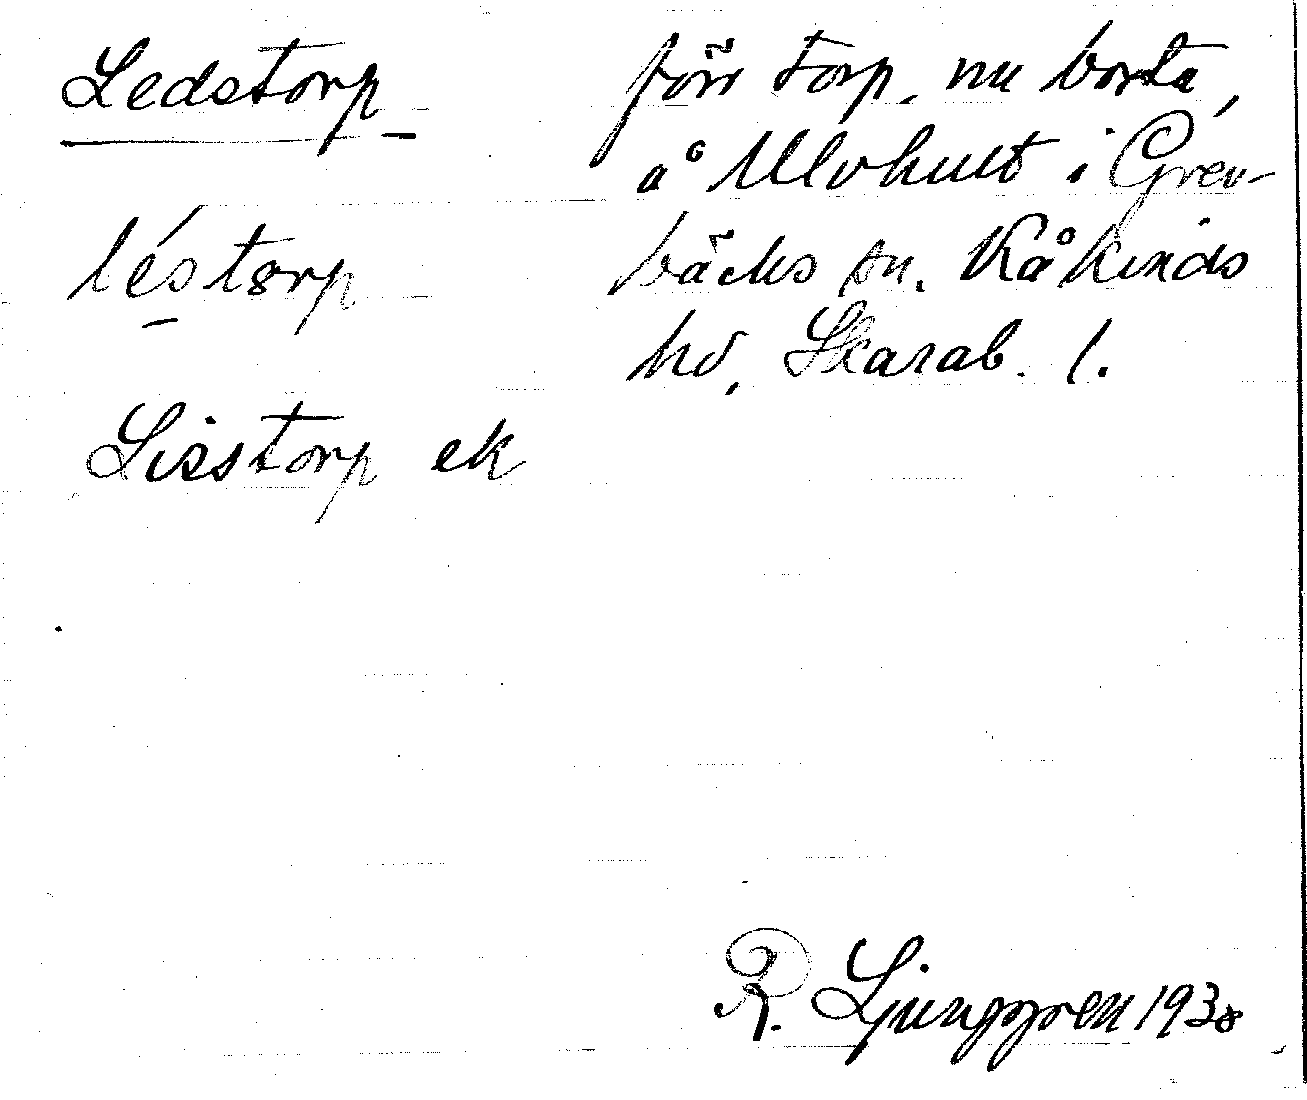 Ledstorp
léstorp
Lisstorp ek
förr torp, nu borta,
å Ulvhult i Grev-
bäcks sn. Kåkinds
hd, Skarab. l.
R. Ljunggren 1938